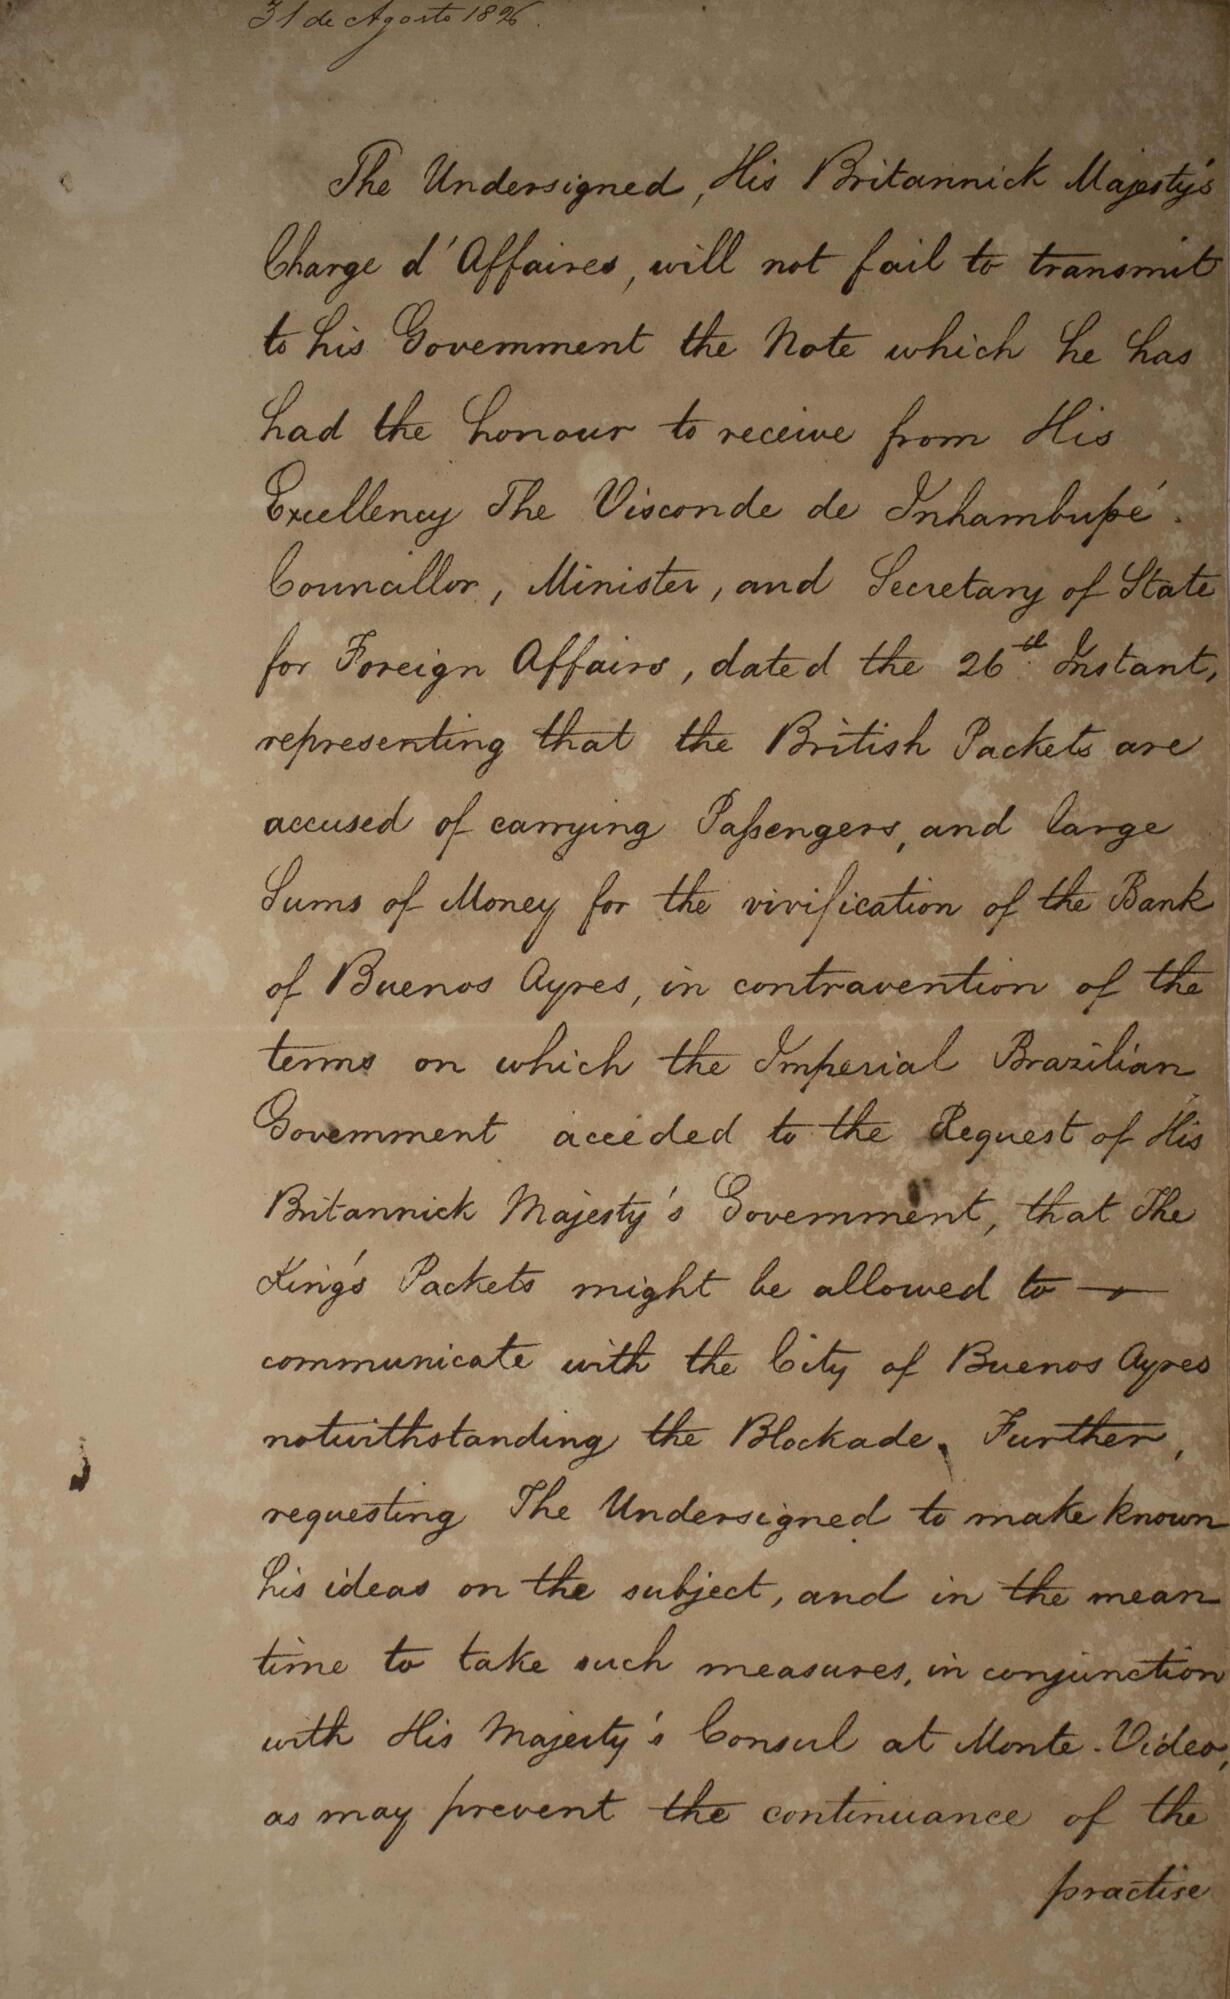 31 de Agosto 1826.
The Undersigned, His Britannick Majesty's
Charge d'Affaires, will not fail to transmit
to his Government the Note which he has
had the honour to receive from His
Excellency The Visconde de Inhambupé.
Councillor, Minister, and Secretary of State
for Foreign Affairs, dated the 26th Instant,
representing that the British Packets are
accused of carrying Paſsengers, and large
Sums of Money for the vivification of the Bank
of Buenos Ayres, in contravention of the
terms on which the Imperial Brazilian
Government acceded to the Request of His
Britannick Majesty's Government, that The
King's Packets might be allowed to —
communicate with the City of Buenos Ayres
notwithstanding the Blockade. Further,
requesting The Undersigned to make known
his ideas on the subject, and in the mean
time to take such measures, in conjunction
with His Majesty's Consul at Monte-Video,
as may prevent the continuance of the
practise